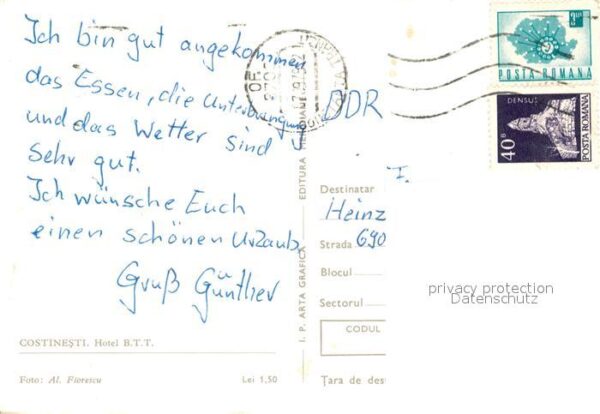 Ich bin gut angekommen
das Essen, die Unterbringung
und das Wetter sind
sehr gut.
Ich wünsche Euch
einen schönen Urlaub.
Gruß Günther
COSTINEŞTI. Hotel B.T.T.
Foto: Al. Florescu
Lei 1,50
I. P. ARTA GRAFICA — EDITURA MERIDIANE
POSTA ROMANA
40 B
DENSUŞ
POSTA ROMANA
DDR
I.
Destinatar
Heinz
Strada 690
Blocul
Sectorul
CODUL
Ţara de des
privacy protection
Datenschutz